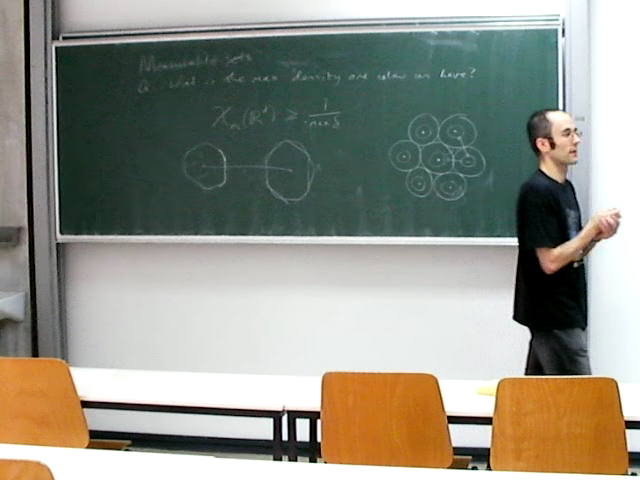 Measurable sets
Q: what is the max density one color can have?
χₘ(ℝᵈ) ≥ 1/max δ